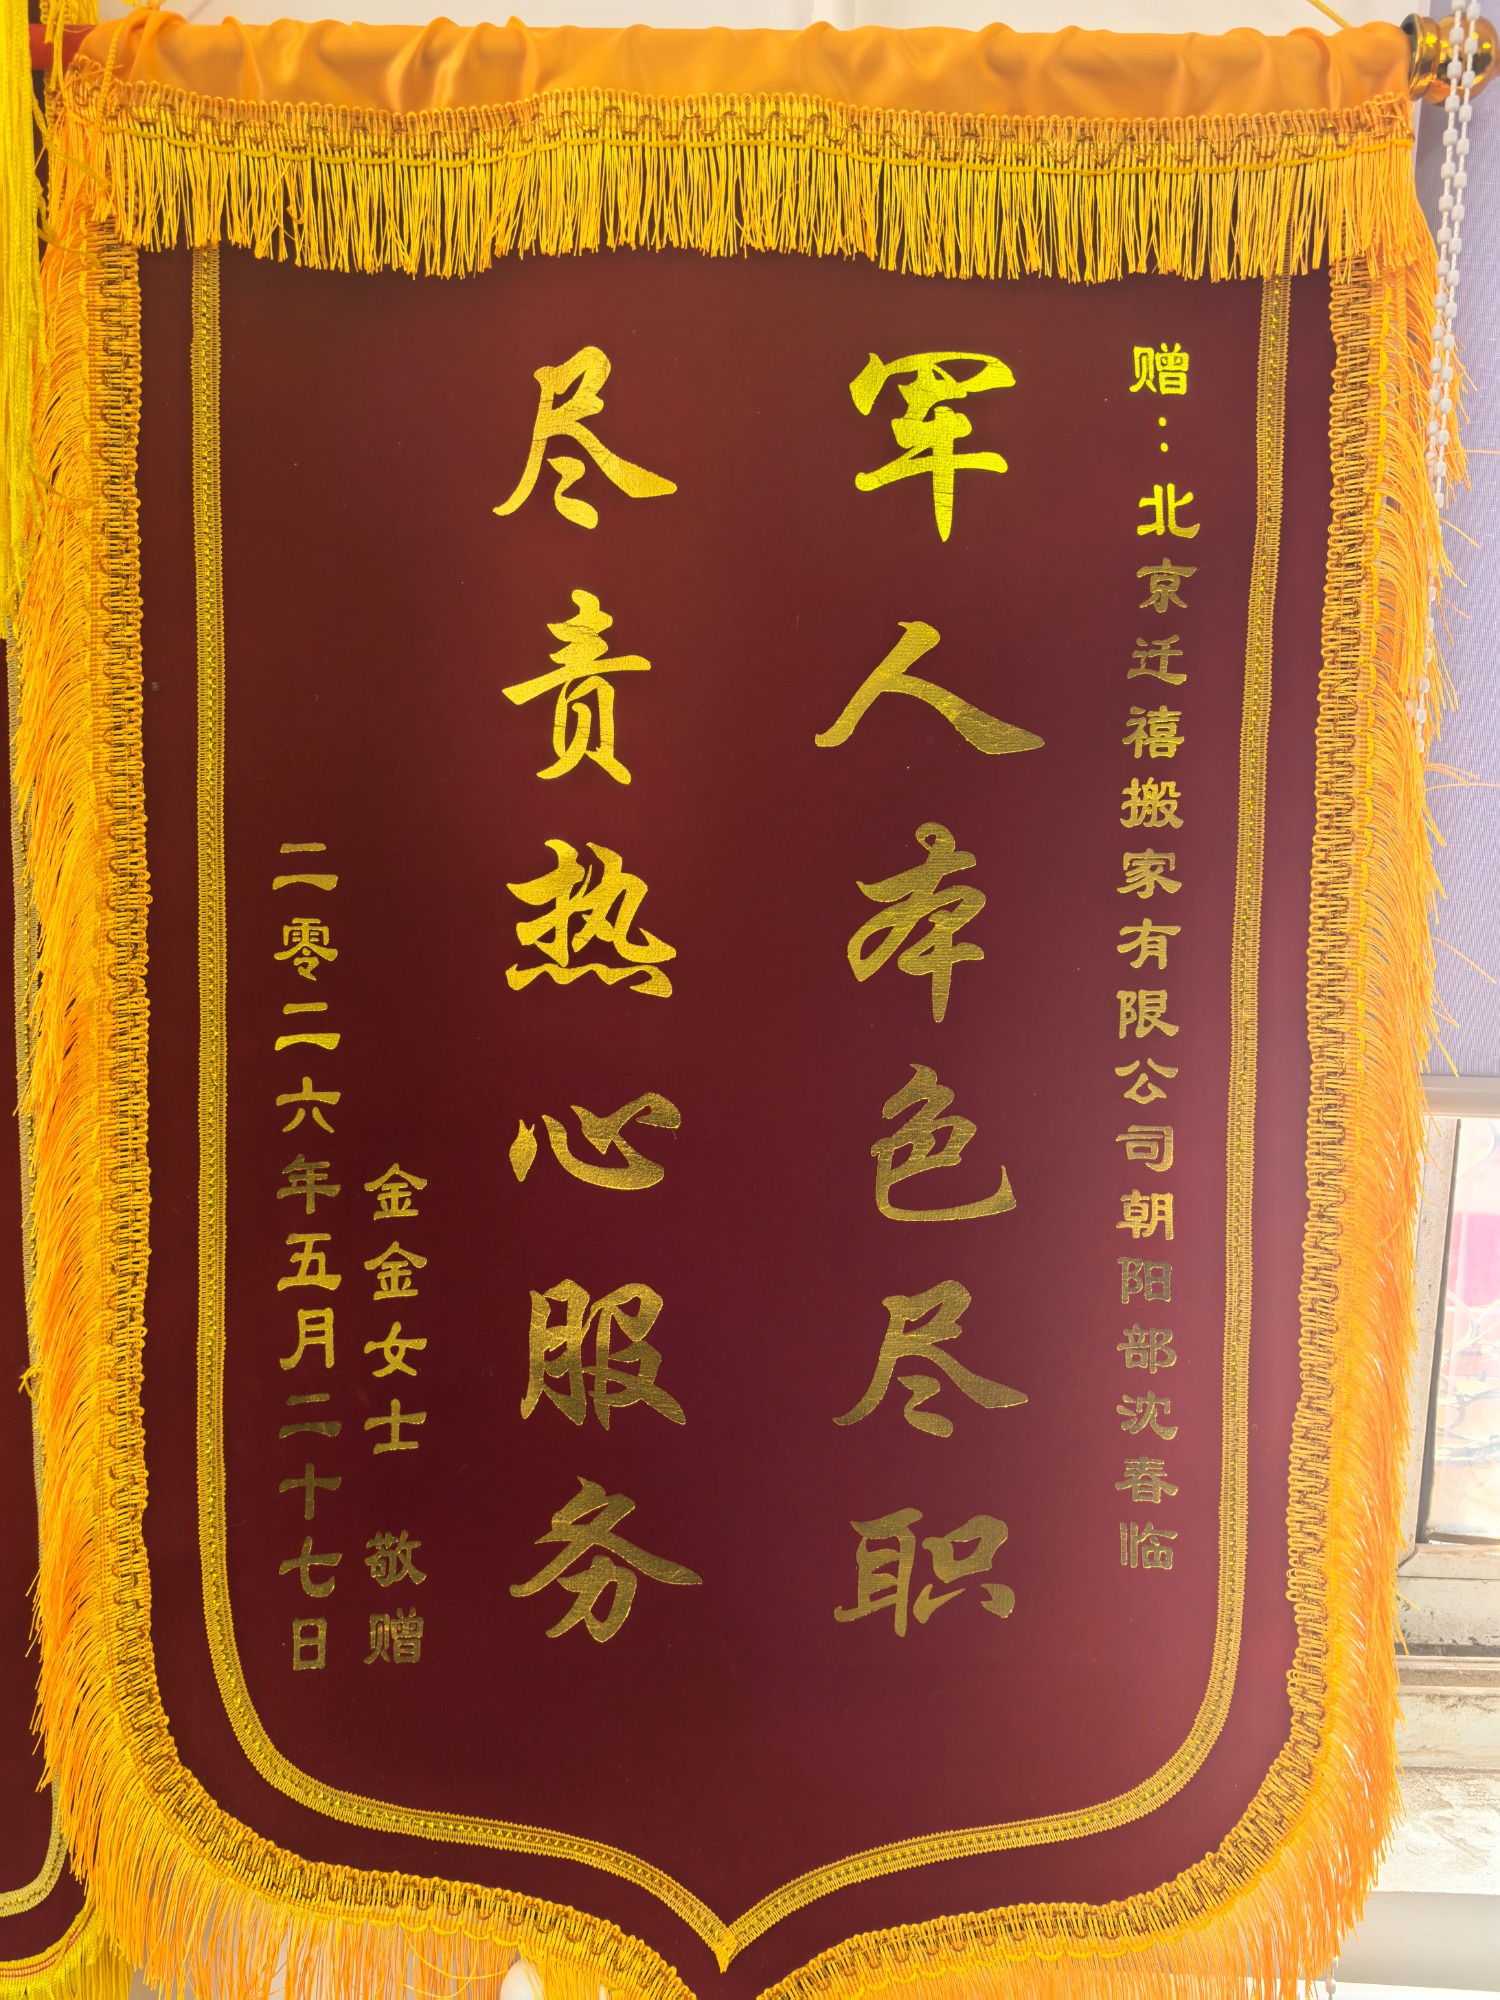 赠：北京迁禧搬家有限公司朝阳部沈春临
军人本色尽职
尽责热心服务
金金女士 敬赠
二零二六年五月二十七日